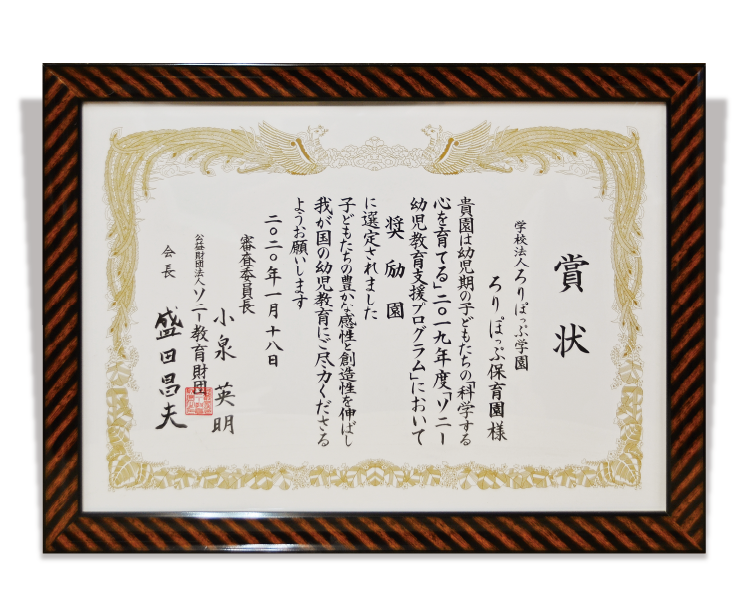 賞状
学校法人ろりぽっぷ学園
ろりぽっぷ保育園様
貴園は幼児期の子どもたちの「科学する
心を育てる」二〇一九年度「ソニー
幼児教育支援プログラム」において
奨励園
に選定されました
子どもたちの豊かな感性と創造性を伸ばし
我が国の幼児教育にご尽力くださる
ようお願いします
二〇二〇年一月十八日
審査委員長
小泉英明
公益財団法人ソニー教育財団
会長
盛田昌夫